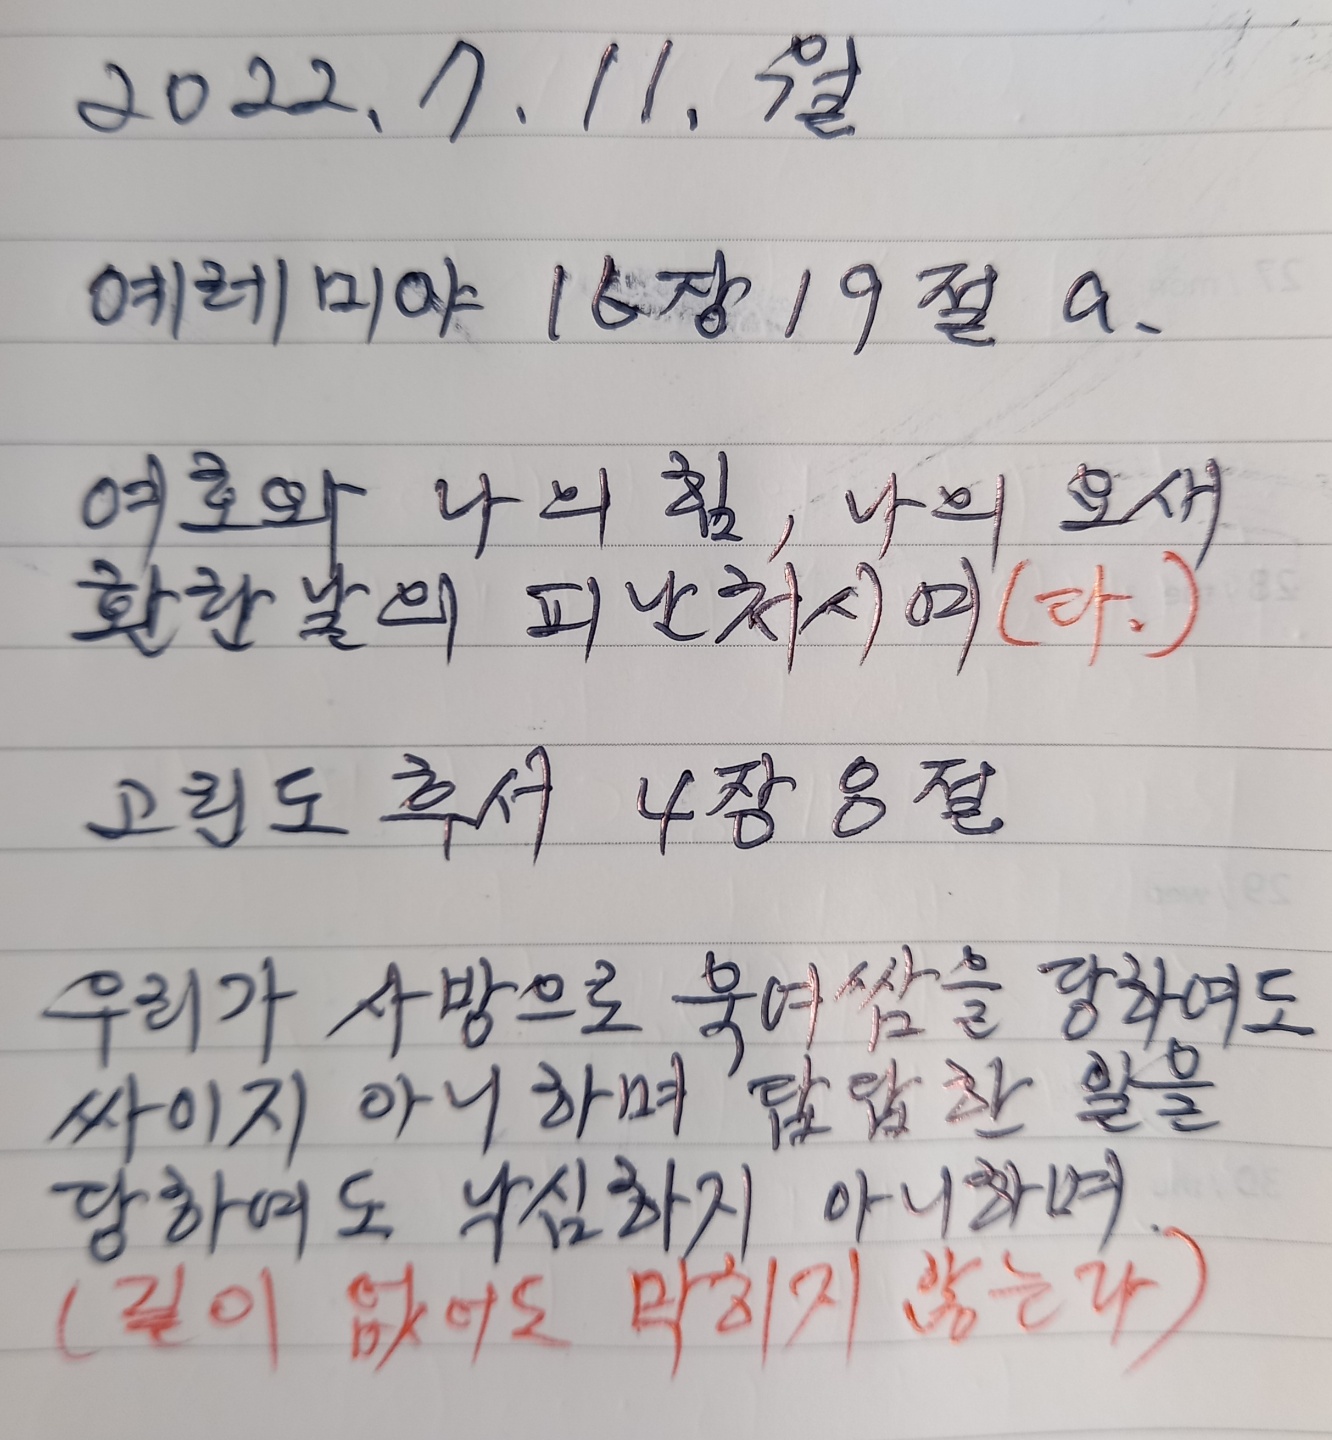 2022. 7. 11. 월
예레미야 16장 19절 a.
여호와 나의 힘, 나의 요새
환란날의 피난처시여(다.)
고린도후서 4장 8절
우리가 사방으로 욱여쌈을 당하여도
싸이지 아니하며 답답한 일을
당하여도 낙심하지 아니하며.
(길이 없어도 막히지 않는다)